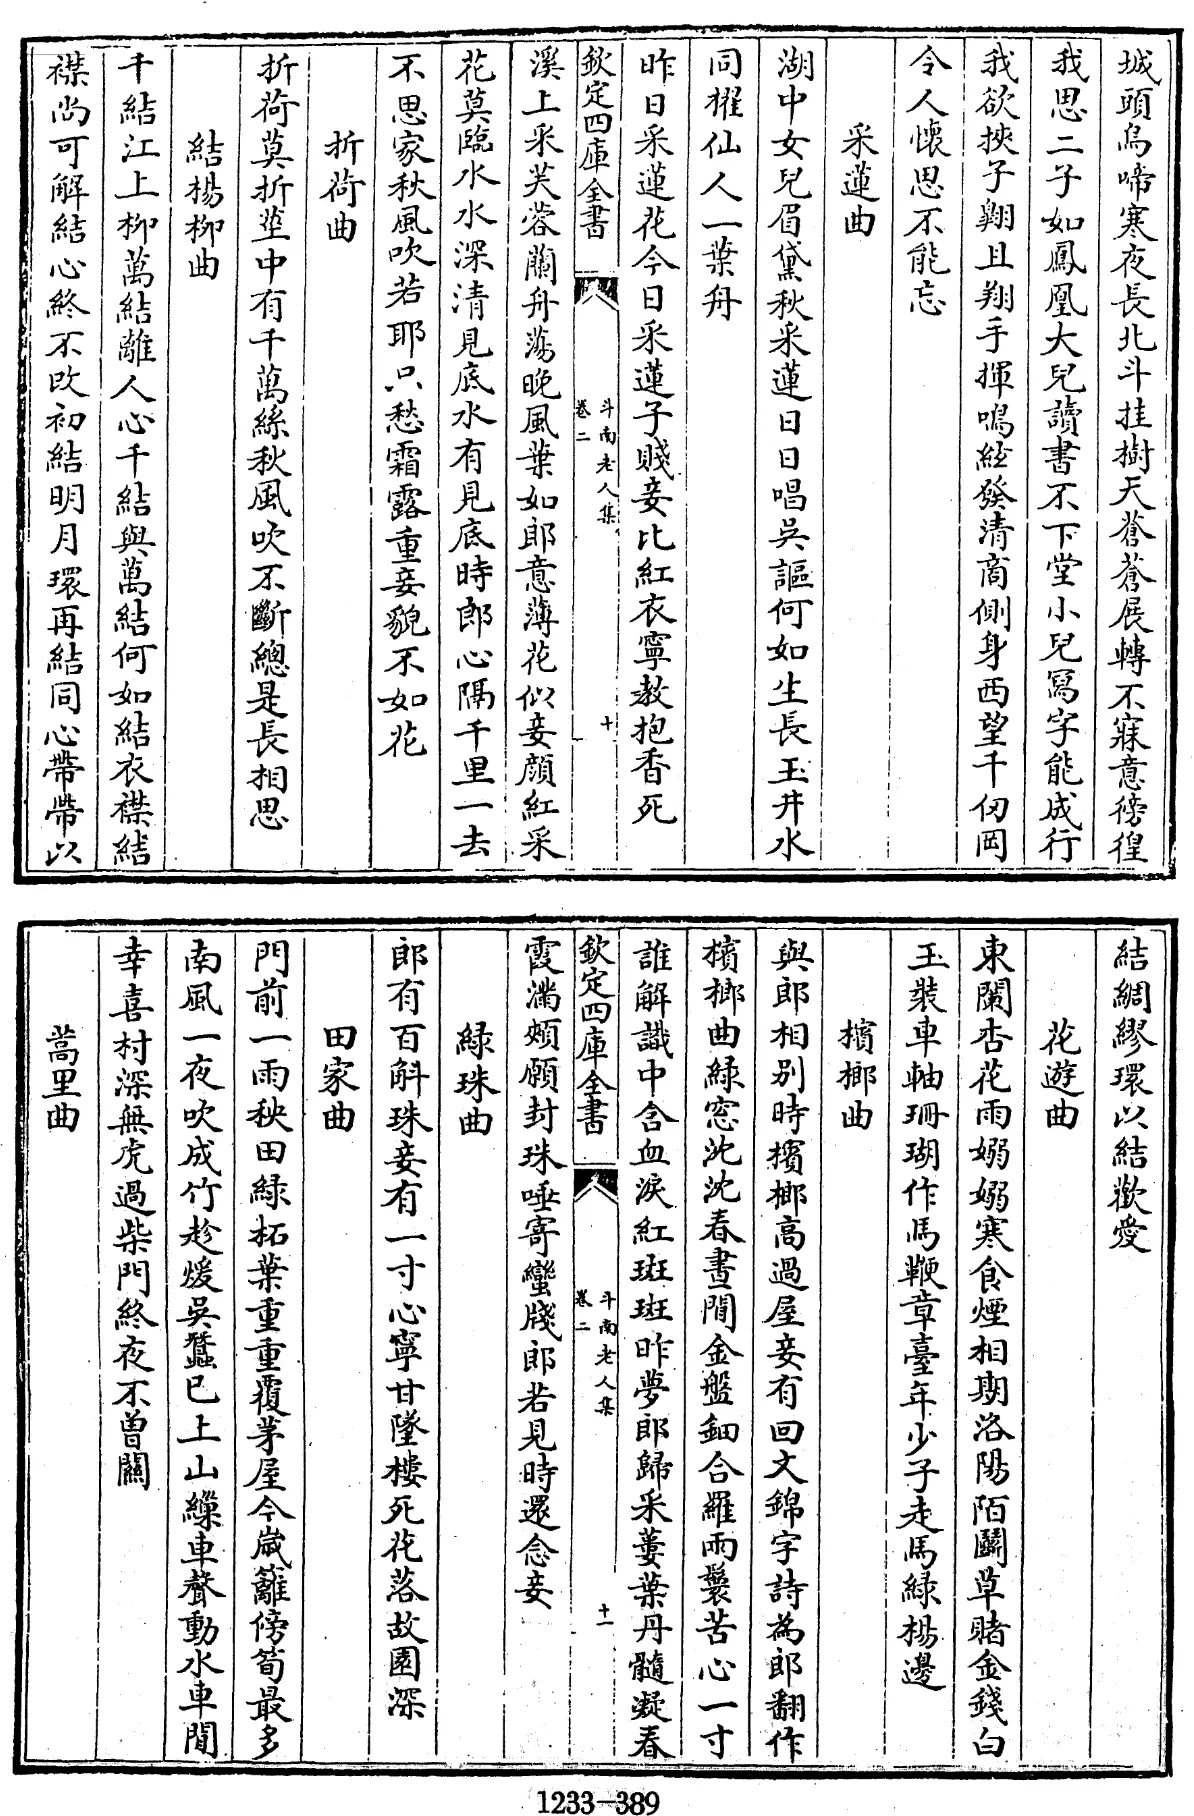 城頭烏啼寒夜長北斗挂樹天蒼蒼展轉不寐意徬徨
我思二子如鳳凰大兒讀書不下堂小兒寫字能成行
我欲挾子翺且翔手揮鳴絃發清商側身西望千仞岡
令人懷思不能忘
采蓮曲
湖中女兒眉黛秋采蓮日日唱吳謳何如生長玉井水
同櫂仙人一葉舟
昨日采蓮花今日采蓮子賤妾比紅衣寧教抱香死
欽定四庫全書
斗南老人集
卷二
十
溪上采芙蓉蘭舟蕩晚風葉如郎意薄花似妾顔紅采
花莫臨水水深清見底水有見底時郎心隔千里一去
不思家秋風吹若耶只愁霜露重妾貌不如花
折荷曲
折荷莫折莖中有千萬絲秋風吹不斷總是長相思
結楊柳曲
千結江上柳萬結離人心千結與萬結何如結衣襟結
襟尚可解結心終不改初結明月環再結同心帶帶以
結綢繆環以結歡愛
花遊曲
東闌杏花雨嫋嫋寒食煙相期洛陽陌鬭草賭金錢白
玉裝車軸珊瑚作馬鞭章臺年少子走馬緑楊邊
檳榔曲
與郎相别時檳榔高過屋妾有回文錦字詩為郎翻作
檳榔曲緑窓沈沈春晝閒金盤鈿合羅雨鬟苦心一寸
誰解識中含血淚紅斑斑昨夢郎歸采蔞葉丹髓凝春
欽定四庫全書
斗南老人集
卷二
十一
霞滿頰願封珠唾寄蠻牋郎若見時還念妾
緑珠曲
郎有百斛珠妾有一寸心寧甘墜樓死花落故園深
田家曲
門前一雨秧田緑柘葉重重覆茅屋今歲籬傍筍最多
南風一夜吹成竹趁煖吳蠶已上山繰車聲動水車閒
幸喜村深無虎過柴門終夜不曾關
蒿里曲
1233-389